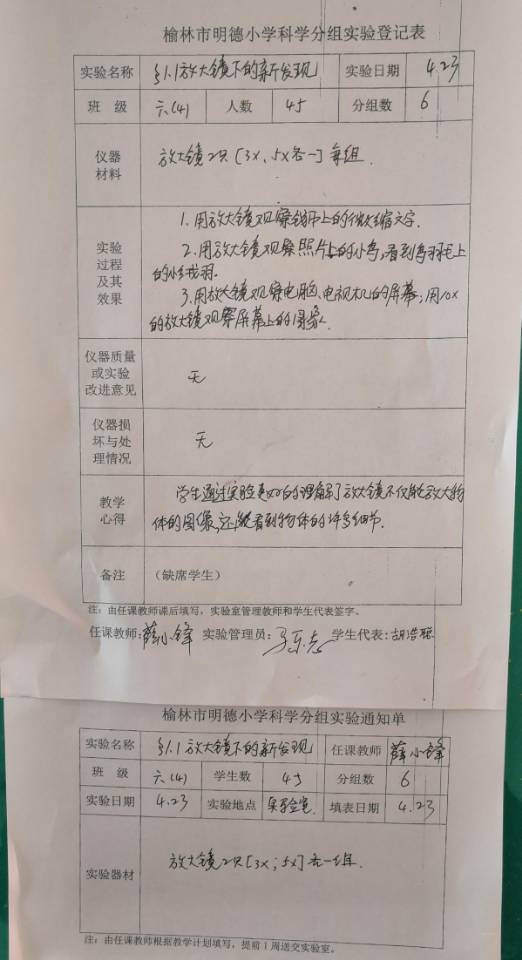 榆林市明德小学科学分组实验登记表
实验名称 §1.1放大镜下的新发现 实验日期 4.23
班 级 六(4) 人数 45 分组数 6
仪器材料 放大镜2只[3x、5x各一]每组.
实验过程及其效果 1.用放大镜观察钱币上的微缩文字.
2.用放大镜观察照片上的小鸟,看到鸟羽毛上
的
3.用放大镜观察电脑、电视机的屏幕;用10x
的放大镜观察屏幕上的图象.
仪器质量或实验改进意见 无
仪器损坏与处理情况 无
教学心得 学生通过实验更好的理解了放大镜不仅能放大物
体的图像,还能看到物体的许多细节.
备注 (缺席学生)
注:由任课教师课后填写,实验室管理教师和学生代表签字。
任课教师:薛小锋 实验管理员: 学生代表:胡浩聪
榆林市明德小学科学分组实验通知单
实验名称 §1.1放大镜下的新发现 任课教师 薛小锋
班 级 六(4) 学生数 45 分组数 6
实验日期 4.23 实验地点 实验室 填表日期 4.23
实验器材 放大镜2只[3x;5x]各一组.
注:由任课教师根据教学计划填写,提前1周送交实验室。